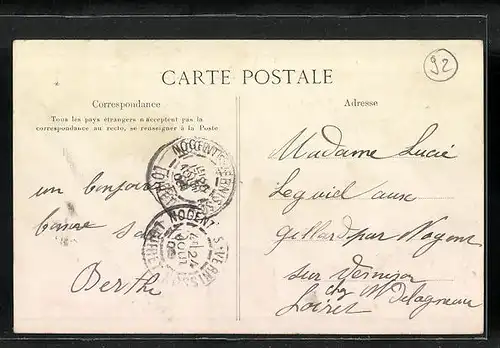 92
CARTE POSTALE
Correspondance
Tous les pays étrangers n'acceptent pas la
correspondance au recto, se renseigner à la Poste
un bonjour
Berthe
NOGENT S-VERNISSON
LOIRET
Adresse
Madame Lucie
aux
par Nogent
sur Vernisson
Loiret chez Mr Delagneau